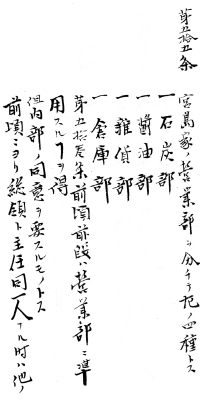 第五拾五条
宮島家ノ営業部ヲ分チテ左ノ四種トス
一石炭部
一醤油部
一雑貨部
一倉庫部
第五拾条前項前段ハ営業部ニ準
用スルヿヲ得
但内部ノ同意ヲ要スルモノトス
前項ニヨリ総領ト主任同一人ナル時ハ他ノ